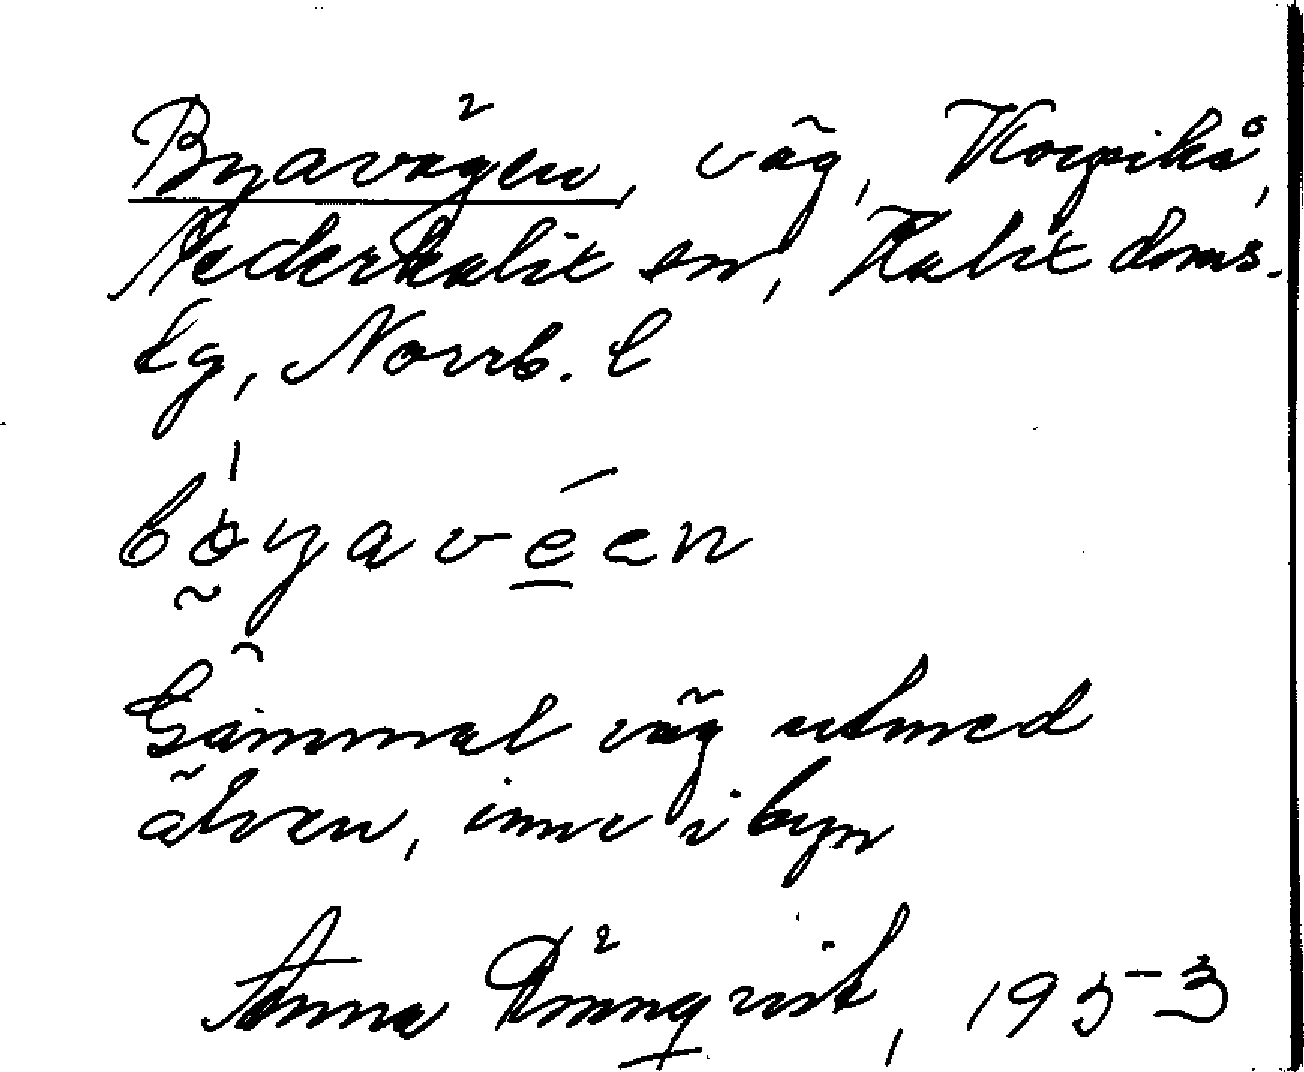 Byavägen, väg, Korpikå,
Nederkalix sn, Kalix doms.
lg, Norrb. l
böyavéen
Gammal väg utmed
älven, inne i byn
Anna Rönnqvist, 1953